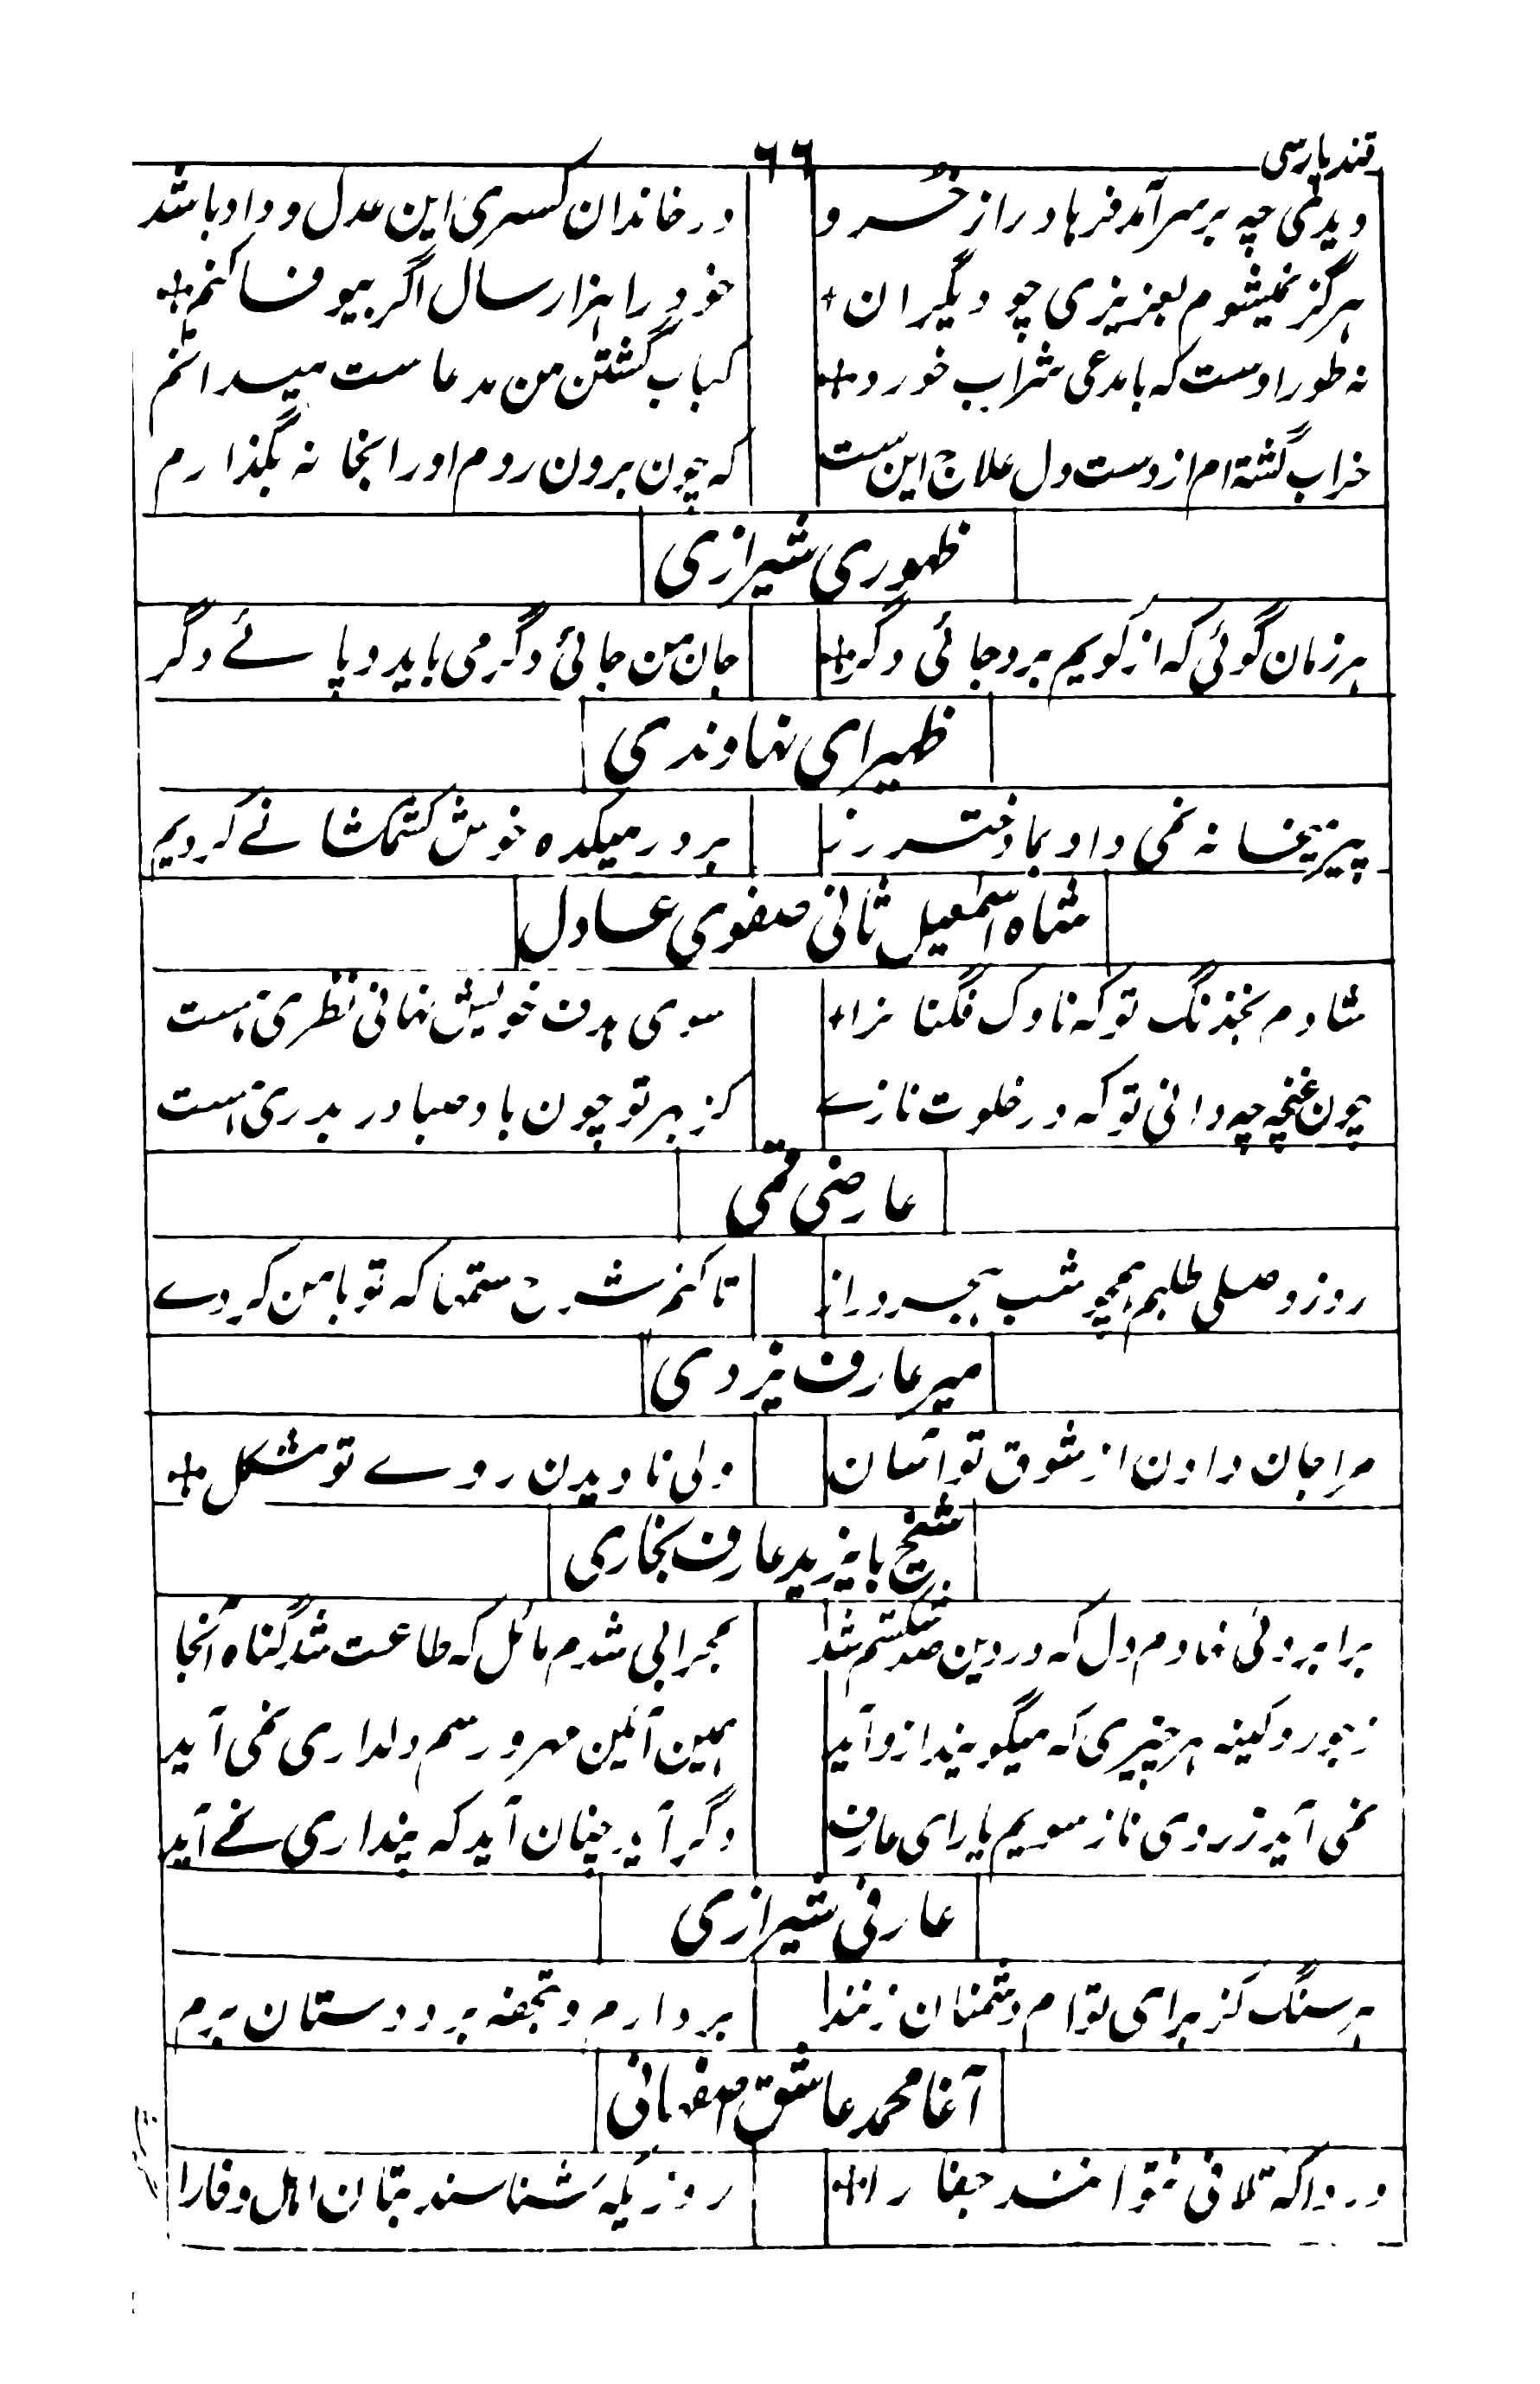 قند پارسی
۶۶
دیدی چه بر سر آمد فرهاد را ز خسرو در خاندان کسری این عدل و داد باشد
هرگز نمیشوم بعزیزی چو دیگران خود را هزار سال اگر بیوفا کنم
نه طور اوست که با مدعی شراب خورد کباب گشتن من مدعاست میدانم
خراب گشته ام از دست دل علاج این ست که چون برون روم اورا بخانه بگذارم
ظهوری شیرازی
هر زمان گوئی که از کویم برو جائی دگر جان من جائی دگر می باید و پائے دگر
ظهیرای نهاوندی
پیر میخانه نمی داد بما دختر رز بر در میکده خوش کشمکشانے کردیم
شاه اسمعیل ثانی صفوی عادل
شادم بخدنگ تو که ناوک فگنانرا سوی هدف خویش نهانی نظری هست
چون غنچه چه دانی تو که در خلوت نازے کز بهر تو چون باد صبا در بدری هست
عارضی قمی
روز وصلی طلبم همچو شب هجر دراز تا کنم شرح ستمها که تو با من کردے
میر عارف یزدی
مرا جان دادن از شوق تو آسان ولی نادیدن روے تو مشکل
شیخ بایزید عارف بخاری
برابروئی نهادم دل که در دین صد شکستم شد بمحرابی شدم مائل که طاعت شد گناه آنجا
ز جور و کینه هر چیزی که میگویند ازو آید همین آئین مهر و رسم دلداری نمی آید
نمی آید ز روی ناز سویم یار ای عارف دگر آید چنان آید که پنداری نمے آید
عارفی شیرازی
هر سنگ کز برای توام دشمنان زنند بردارم و بتحفه بر دوستان برم
آغا محمد عاشق صفهانی
دردا که تلافی نتوانند جفا را روزیکه شناسند بتان اهل وفا را